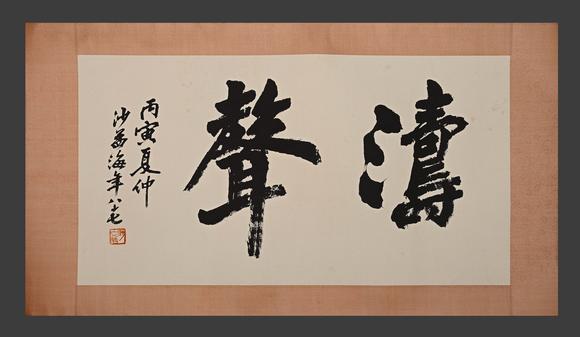 濤聲
丙寅夏仲
沙孟海年八十七